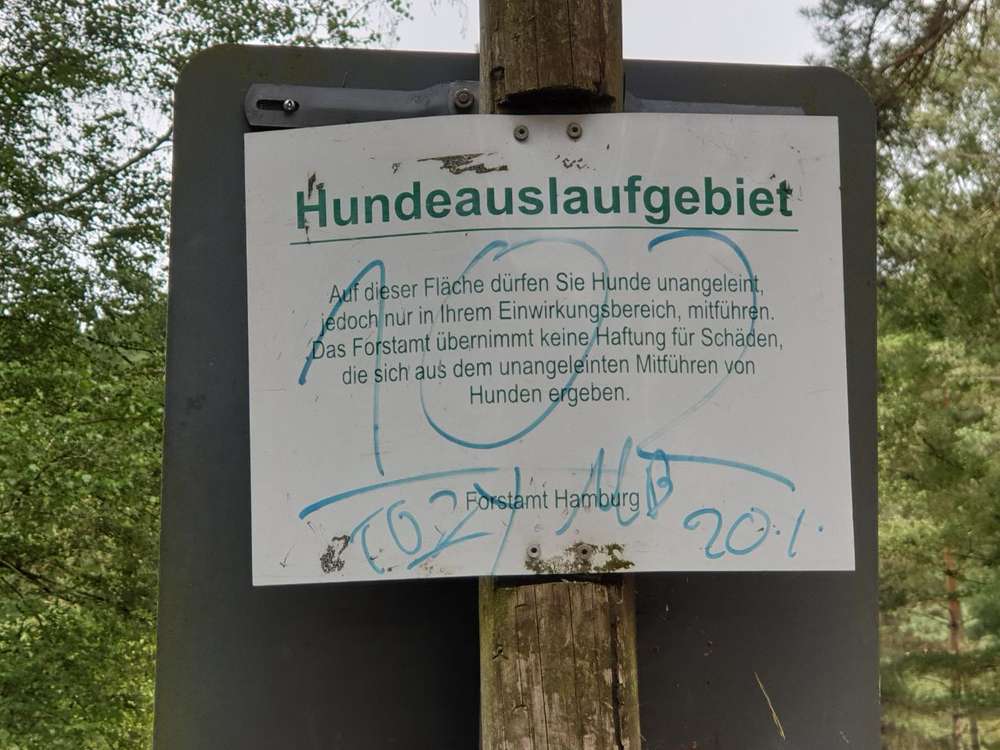 Hundeauslaufgebiet
Auf dieser Fläche dürfen Sie Hunde unangeleint,
jedoch nur in Ihrem Einwirkungsbereich, mitführen.
Das Forstamt übernimmt keine Haftung für Schäden,
die sich aus dem unangeleinten Mitführen von
Hunden ergeben.
Forstamt Hamburg
20.1.